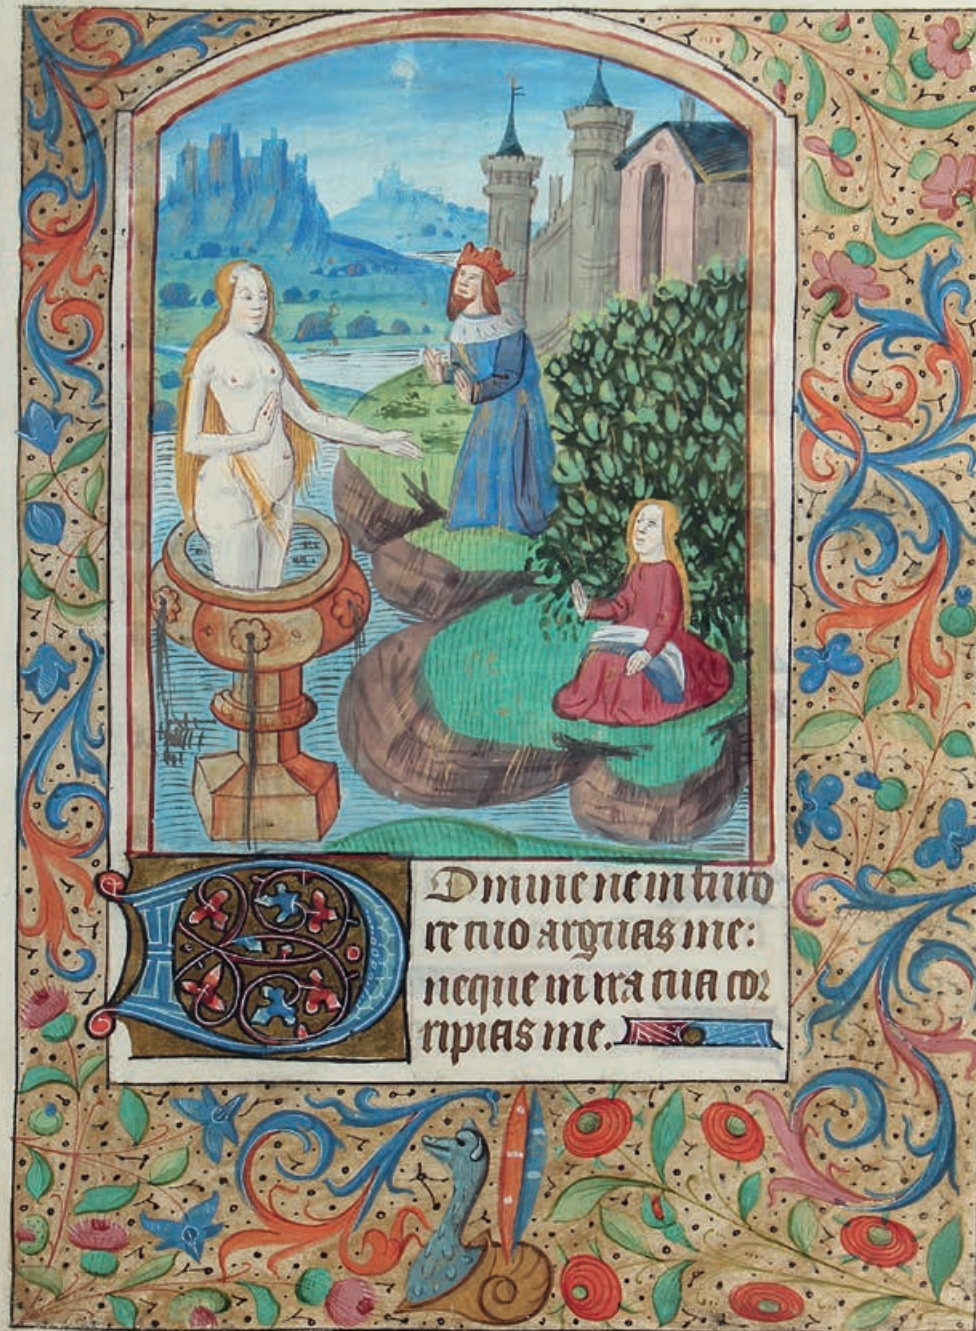 Domine ne in furo
re tuo arguas me:
neque in ira tua cor
ripias me.